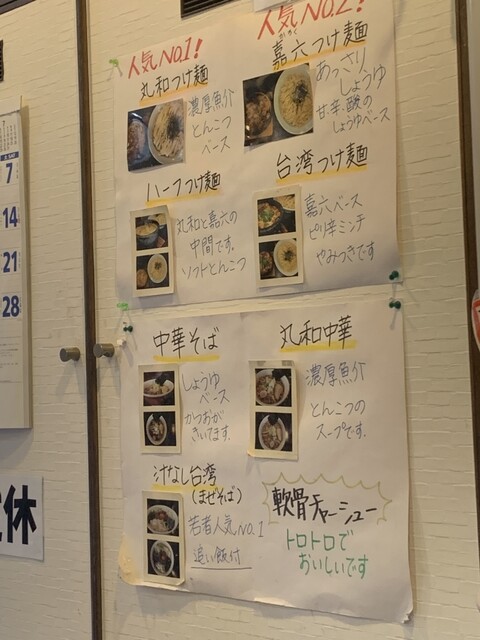 人気No.1!
丸和つけ麺
濃厚魚介
とんこつ
ベース
人気No.2!
かろく
嘉六つけ麺
あっさり
しょうゆ
甘、辛、酸の
しょうゆベース
ハーフつけ麺
丸和と嘉六の
中間です。
ソフトとんこつ
台湾つけ麺
嘉六ベース
ピリ辛ミンチ
やみつきです
中華そば
しょうゆ
ベース
かつおが
きいてます。
丸和中華
濃厚魚介
とんこつの
スープです。
汁なし台湾
(まぜそば)
若者人気No.1
追い飯付
軟骨チャーシュー
トロトロで
おいしいです
7
14
21
28
休